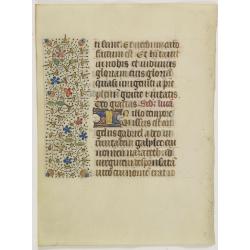 ti sunt. Et verbum caro
factum est Et habitavit
in nobis et vidimus
gloriam eius gloria
quasi unigeniti a pr̄e
plenū gratie et veritatis
Deo gracias Sedm̄ lucā
In illo tempore
missus est an
gelus gabriel a deo in
civitatem galylee cui
nomen nazareth ad
virginem desponsatā
viro cui nomen erat io